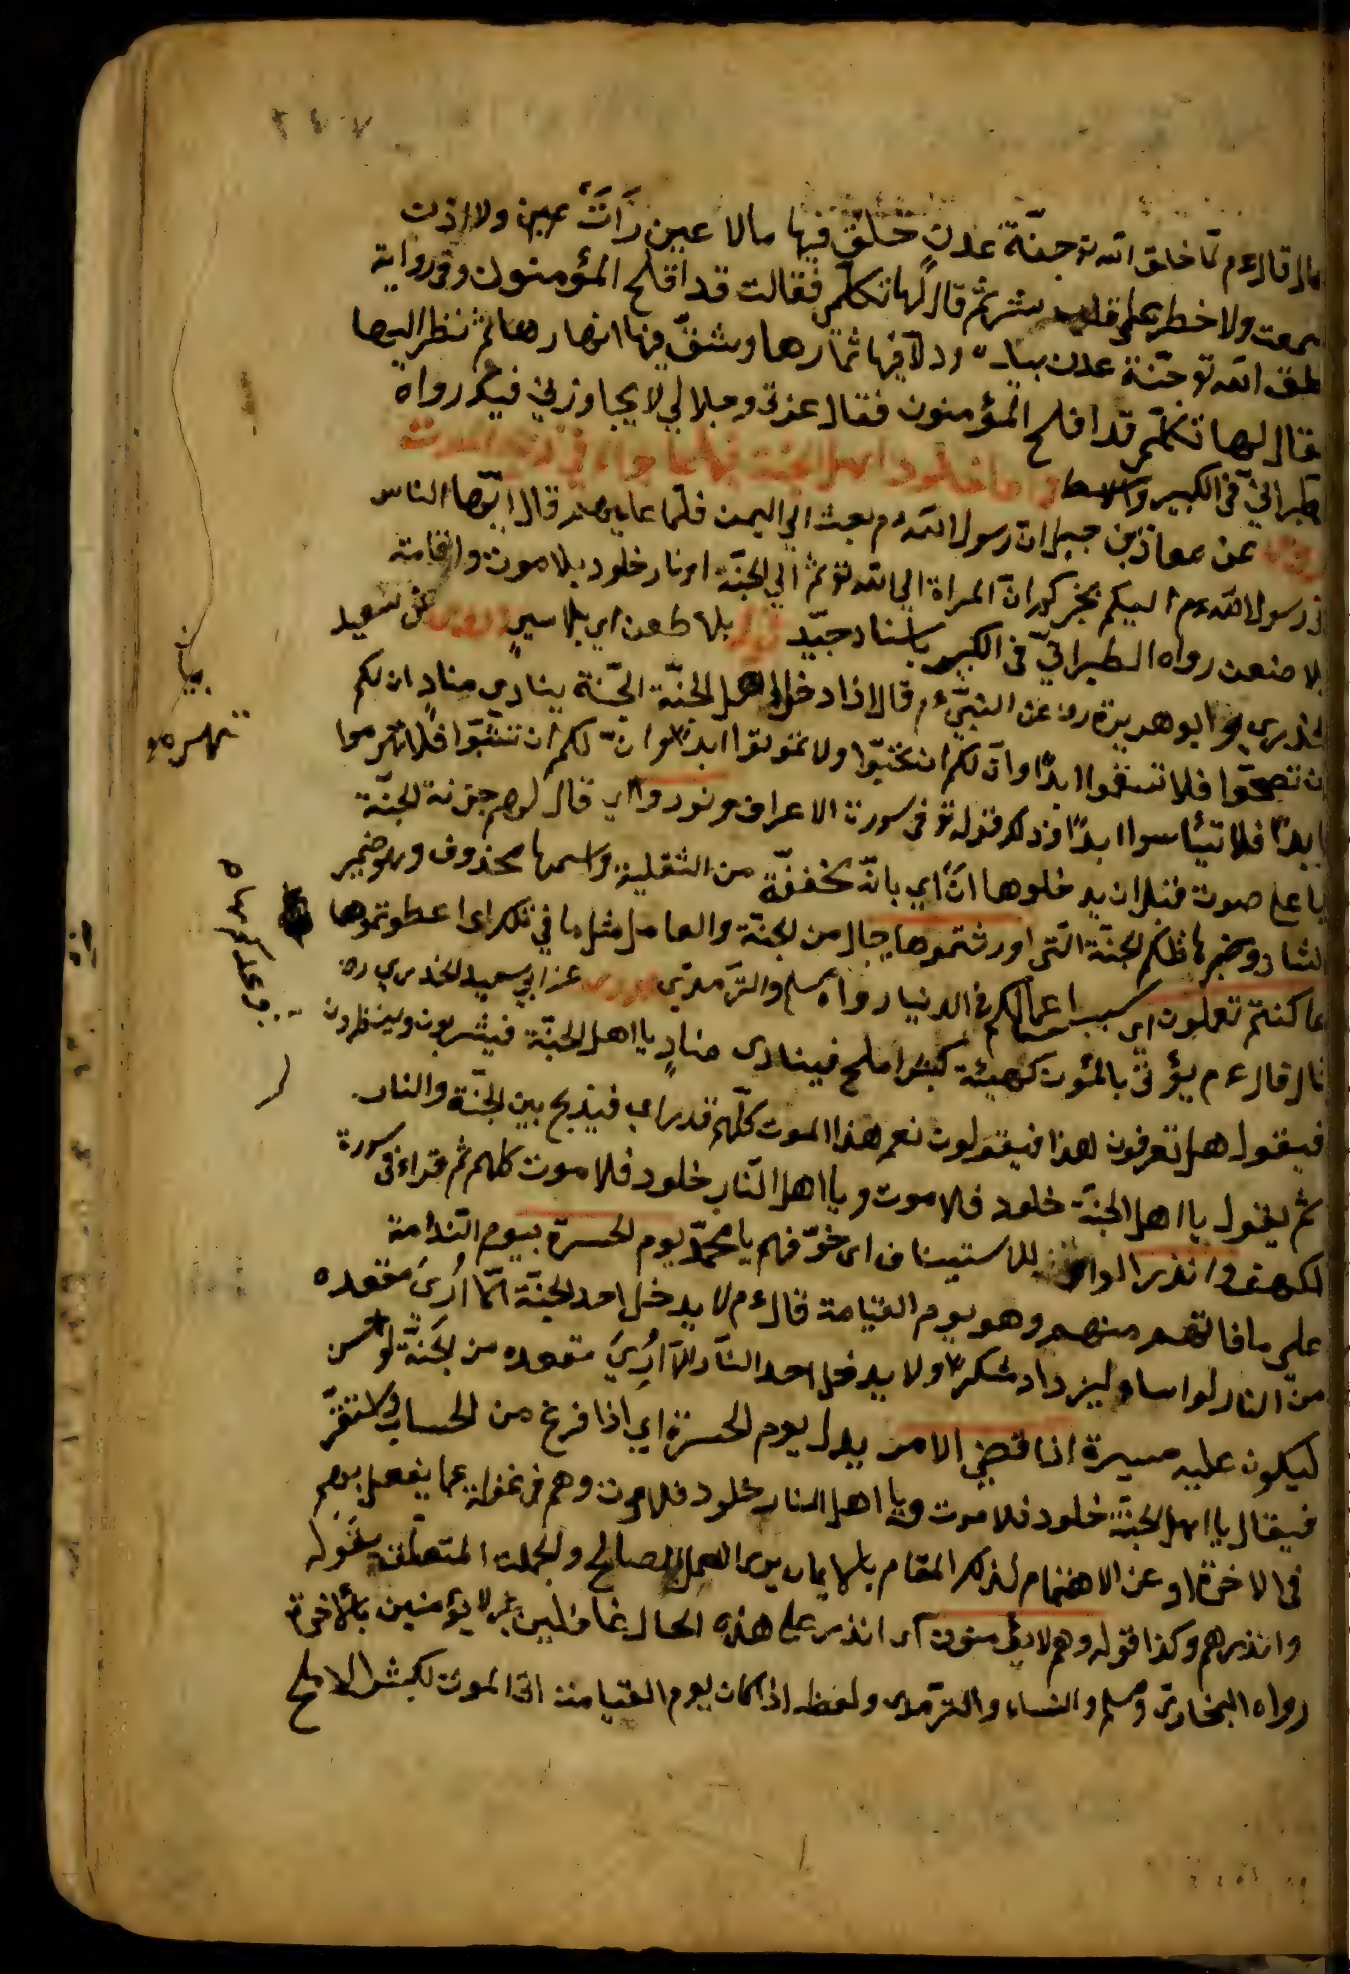 قال قال ءم لما خلق الله تع جنّة عدن خلق فيها مالا عين رَاَتْ عين ولا اذن
سمعت ولا خطر على قلب بشر ثم قال لها تكلمى فقالت قد افلح المؤمنون وفى رواية
خلق الله تع جنّة عدن بيده ودلّا فيها ثمارها وشقّ فيها انهارها ثم نظر اليها
فقال لها تكلمى قد افلح المؤمنون فقال عزتى وجلالي لا يجاوزني فيك رواه
طبرانيّ فى الكبير والاوسط واما خلود اهل الجنة فيها فما جاء في ذبح الموت
روى عن معاذ بن جبل ان رسول الله ءم بعث الي اليمن فلما عليهم قال ايّها الناس
انى رسول الله ءم اليكم يخبركم ان المراة الي الله تع ثم الي الجنّة او نار خلود بلا موت واقامة
بلا ضعن رواه الطبرانيّ فى الكبير باسناد جيّد قوله بلا طعن اي بلا سير وروى عن سعيد
الخدرى وابو هريرة رض عن النبيّ ءم قال اذا دخل اهل الجنّة الجّنة ينادي منادٍ ان لكم
ان تصحّوا فلا تسقموا ابدًا وان لكم ان تحيّوا ولا تموتوا ابدًا وانّ لكم ان تشبّوا فلا تهرموا
ابدًا فلا تيأسوا ابدًا وذلك قوله تع فى سورة الاعراف ونودوا اي قال لهم خزنة الجنّة
باعلى صوت قبل ان يدخلوها اَنْ اي بانّه مخففّة من الثقلية واسمها محذوف وهو ضمير
الشان وخبرها تلكم الجنّة الّتى اورثتموها حال من الجنة والعامل مثل ما في تلك اى اعطوتموها
بما كنتم تعلون اى بسبب اعمالكم فى الدنيا رواه مسلم والترمذى وروى عن ابى سعيد الخدري رض
قال قال ءم يؤتى بالموت كهيئة كبش املح فينادى منادٍ يا اهل الجنّة فيشربون وينظرون
فيقول هل تعرفون هذا فيقولون نعم هذا الموت كلّهم قد راى فيذبح بين الجنّة والنار
ثم يقول يا اهل الجنّة خلود فلا موت ويا اهل النّار خلود فلا موت كلهم ثم قراء فى سورة
الكهف وانذر الواو للاستيناف اى خوّفهم يا محمّد يوم الحسرة بيوم النّدامة
على ما فاتهم منهم وهو يوم القيامة قال ءم لا يدخل احد الجنّة الّا اُرِىَ مقعده
من النار لو اساء ليزداد شكرًا ولا يدخل احد النّار الّا اُرِيَ مقعده من الجَنّة لو احسن
ليكون عليه حسرة اذا قضي الامر بدل يوم الحسرة اي اذا فرغ من الحساب واستقرّ
فيقال يا اهل الجنّة خلود فلا موت ويا اهل النار خلود فلا موت وهم فى غفلة عما يفعل بهم
فى الاخرة او عن الاهتمام لذكر المقام بالايمان والعمل الصالح والجملة المتعلّقة بقَوله
وانذرهم وكذا قوله وهم لا يؤمنون اى انذر على هذه الحال غافلين غير لا يؤمنين بالاخرة
رواه البخارى ومسلم والنساء والترمذى ولفظه اذا كان يوم القيامة اتى الموت كبش الاملح